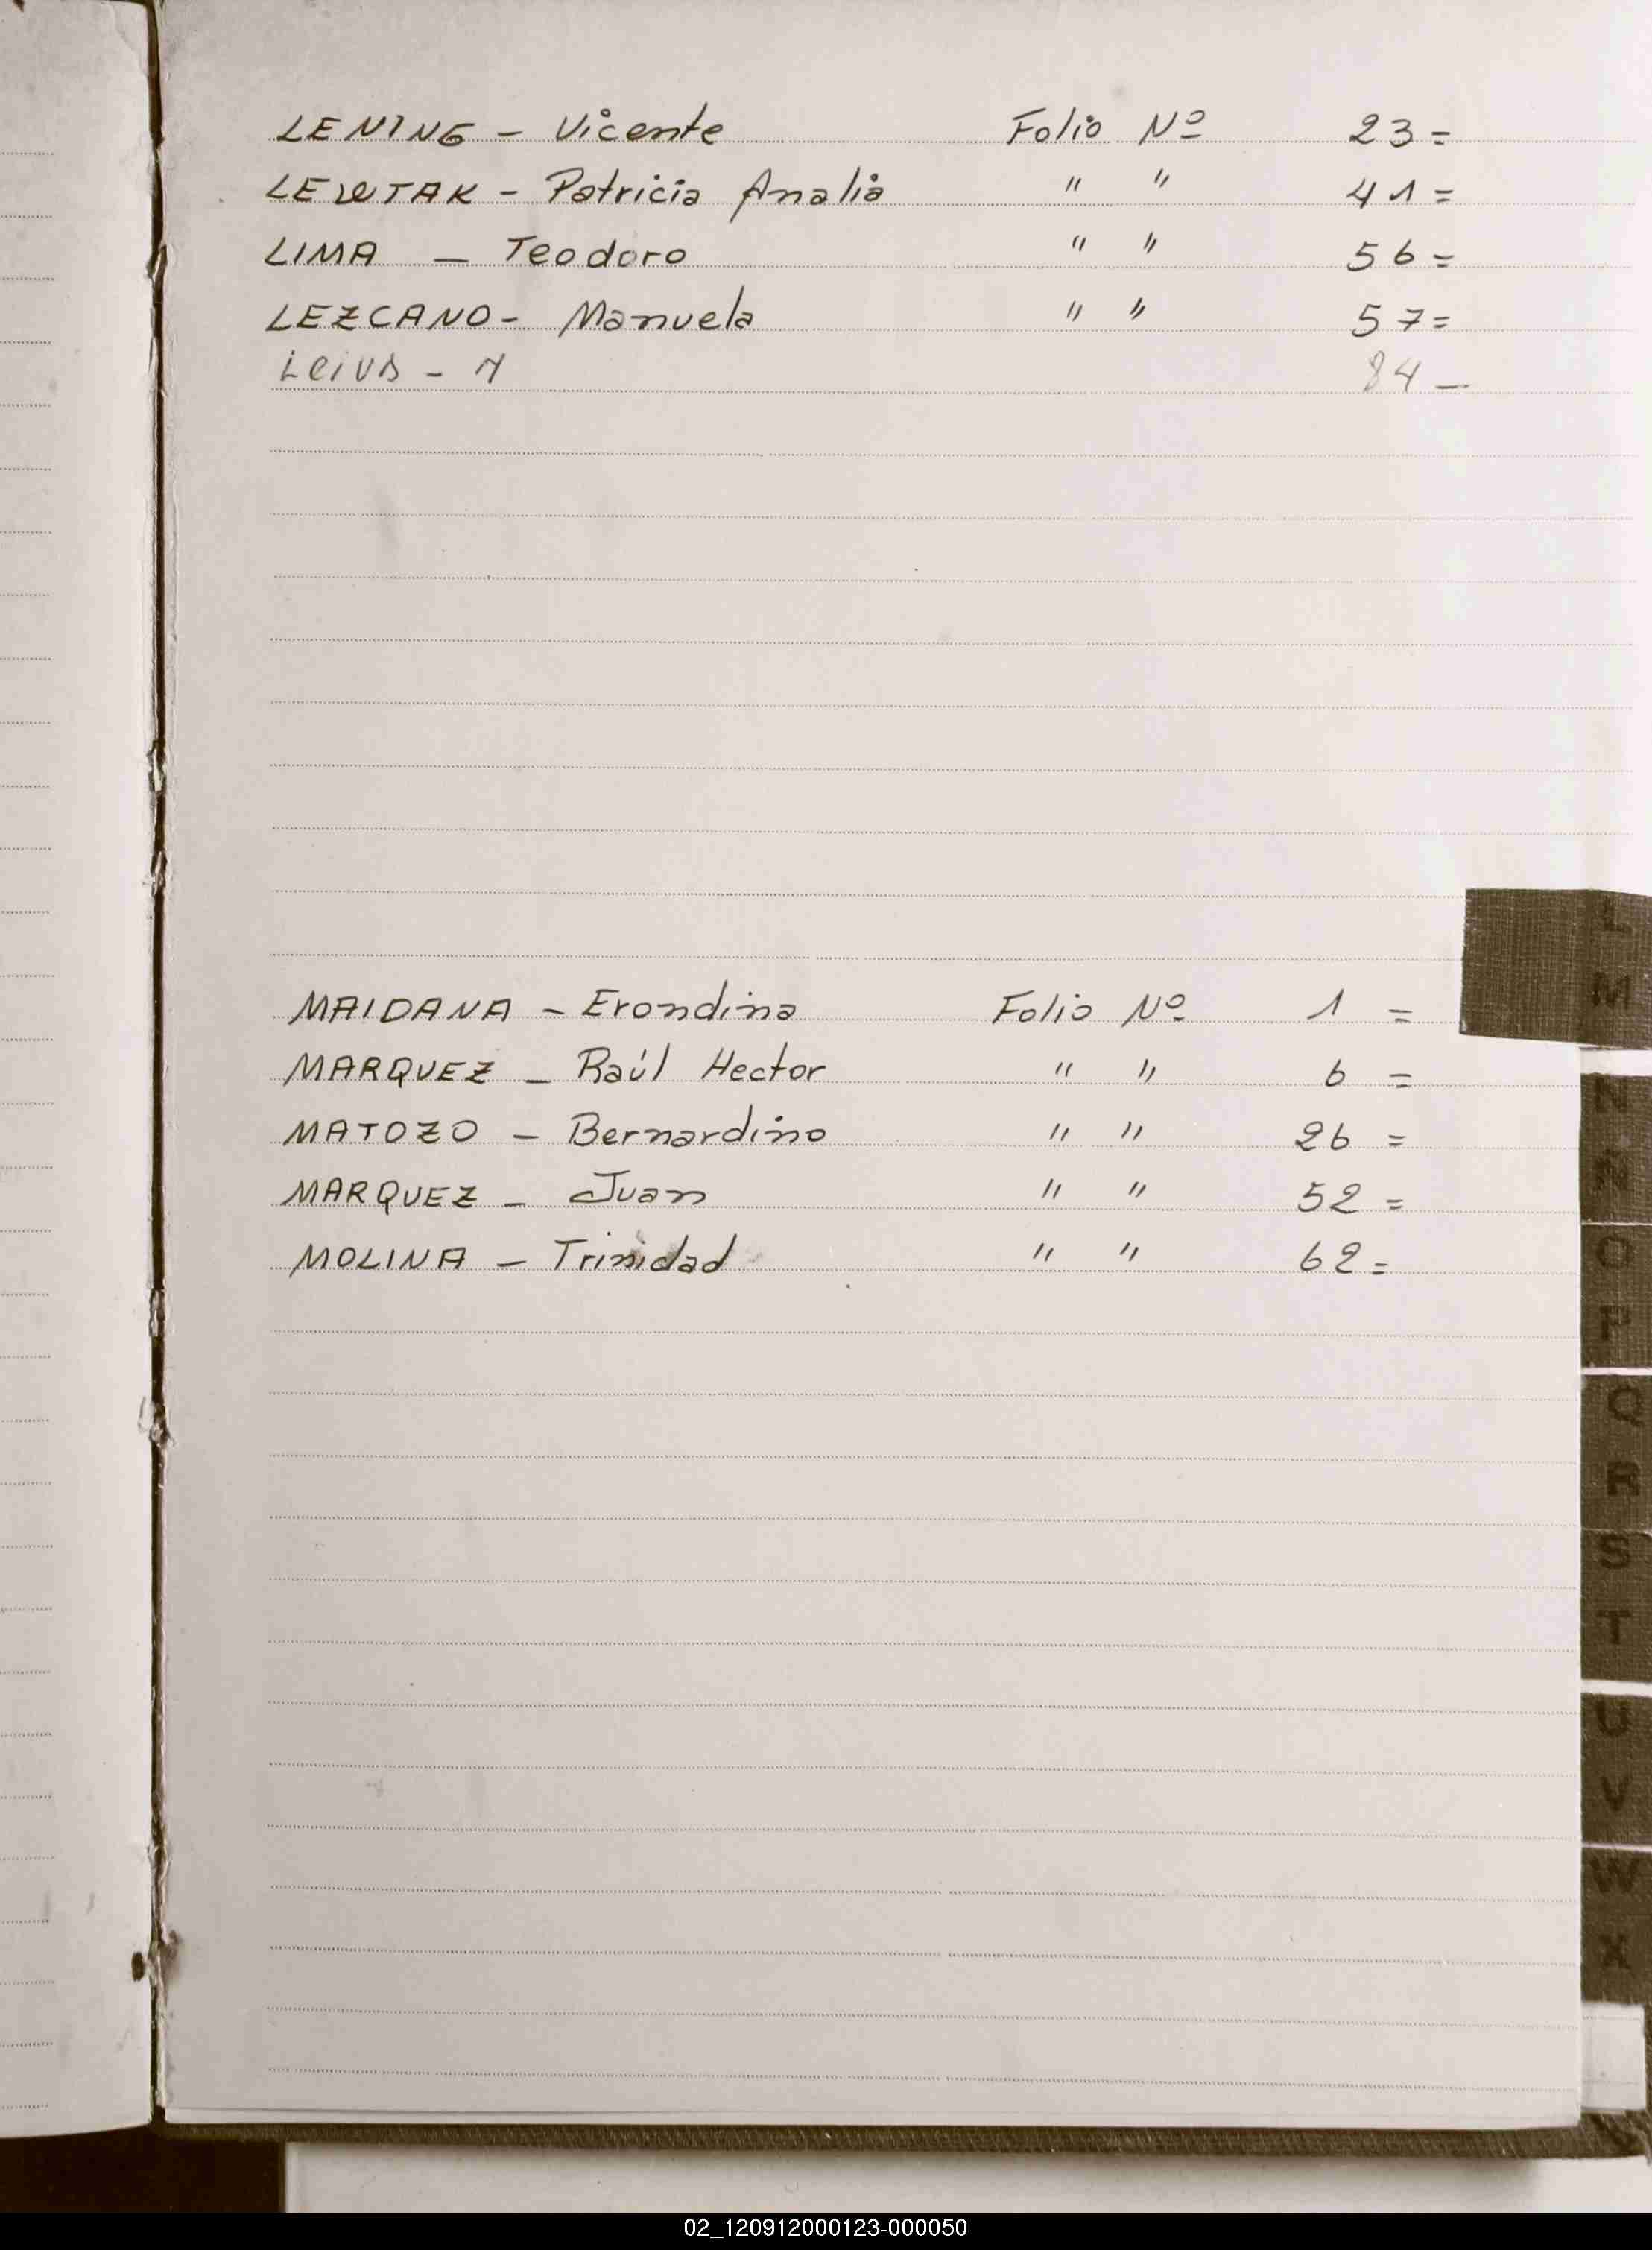 LENING - Vicente Folio Nº 23 =
LEWTAK - Patricia Analia " " 41 =
LIMA - Teodoro " " 56 =
LEZCANO - Manuela " " 57 =
Leiva - M 84 -
L
M
MAIDANA - Erondina Folio Nº 1 =
MARQUEZ - Raúl Hector " " 6 =
MATOZO - Bernardino " " 26 =
MARQUEZ - Juan " " 52 =
MOLINA - Trinidad " " 62 =
N
Ñ
O
P
Q
R
S
T
U
V
W
X
02_120912000123-000050